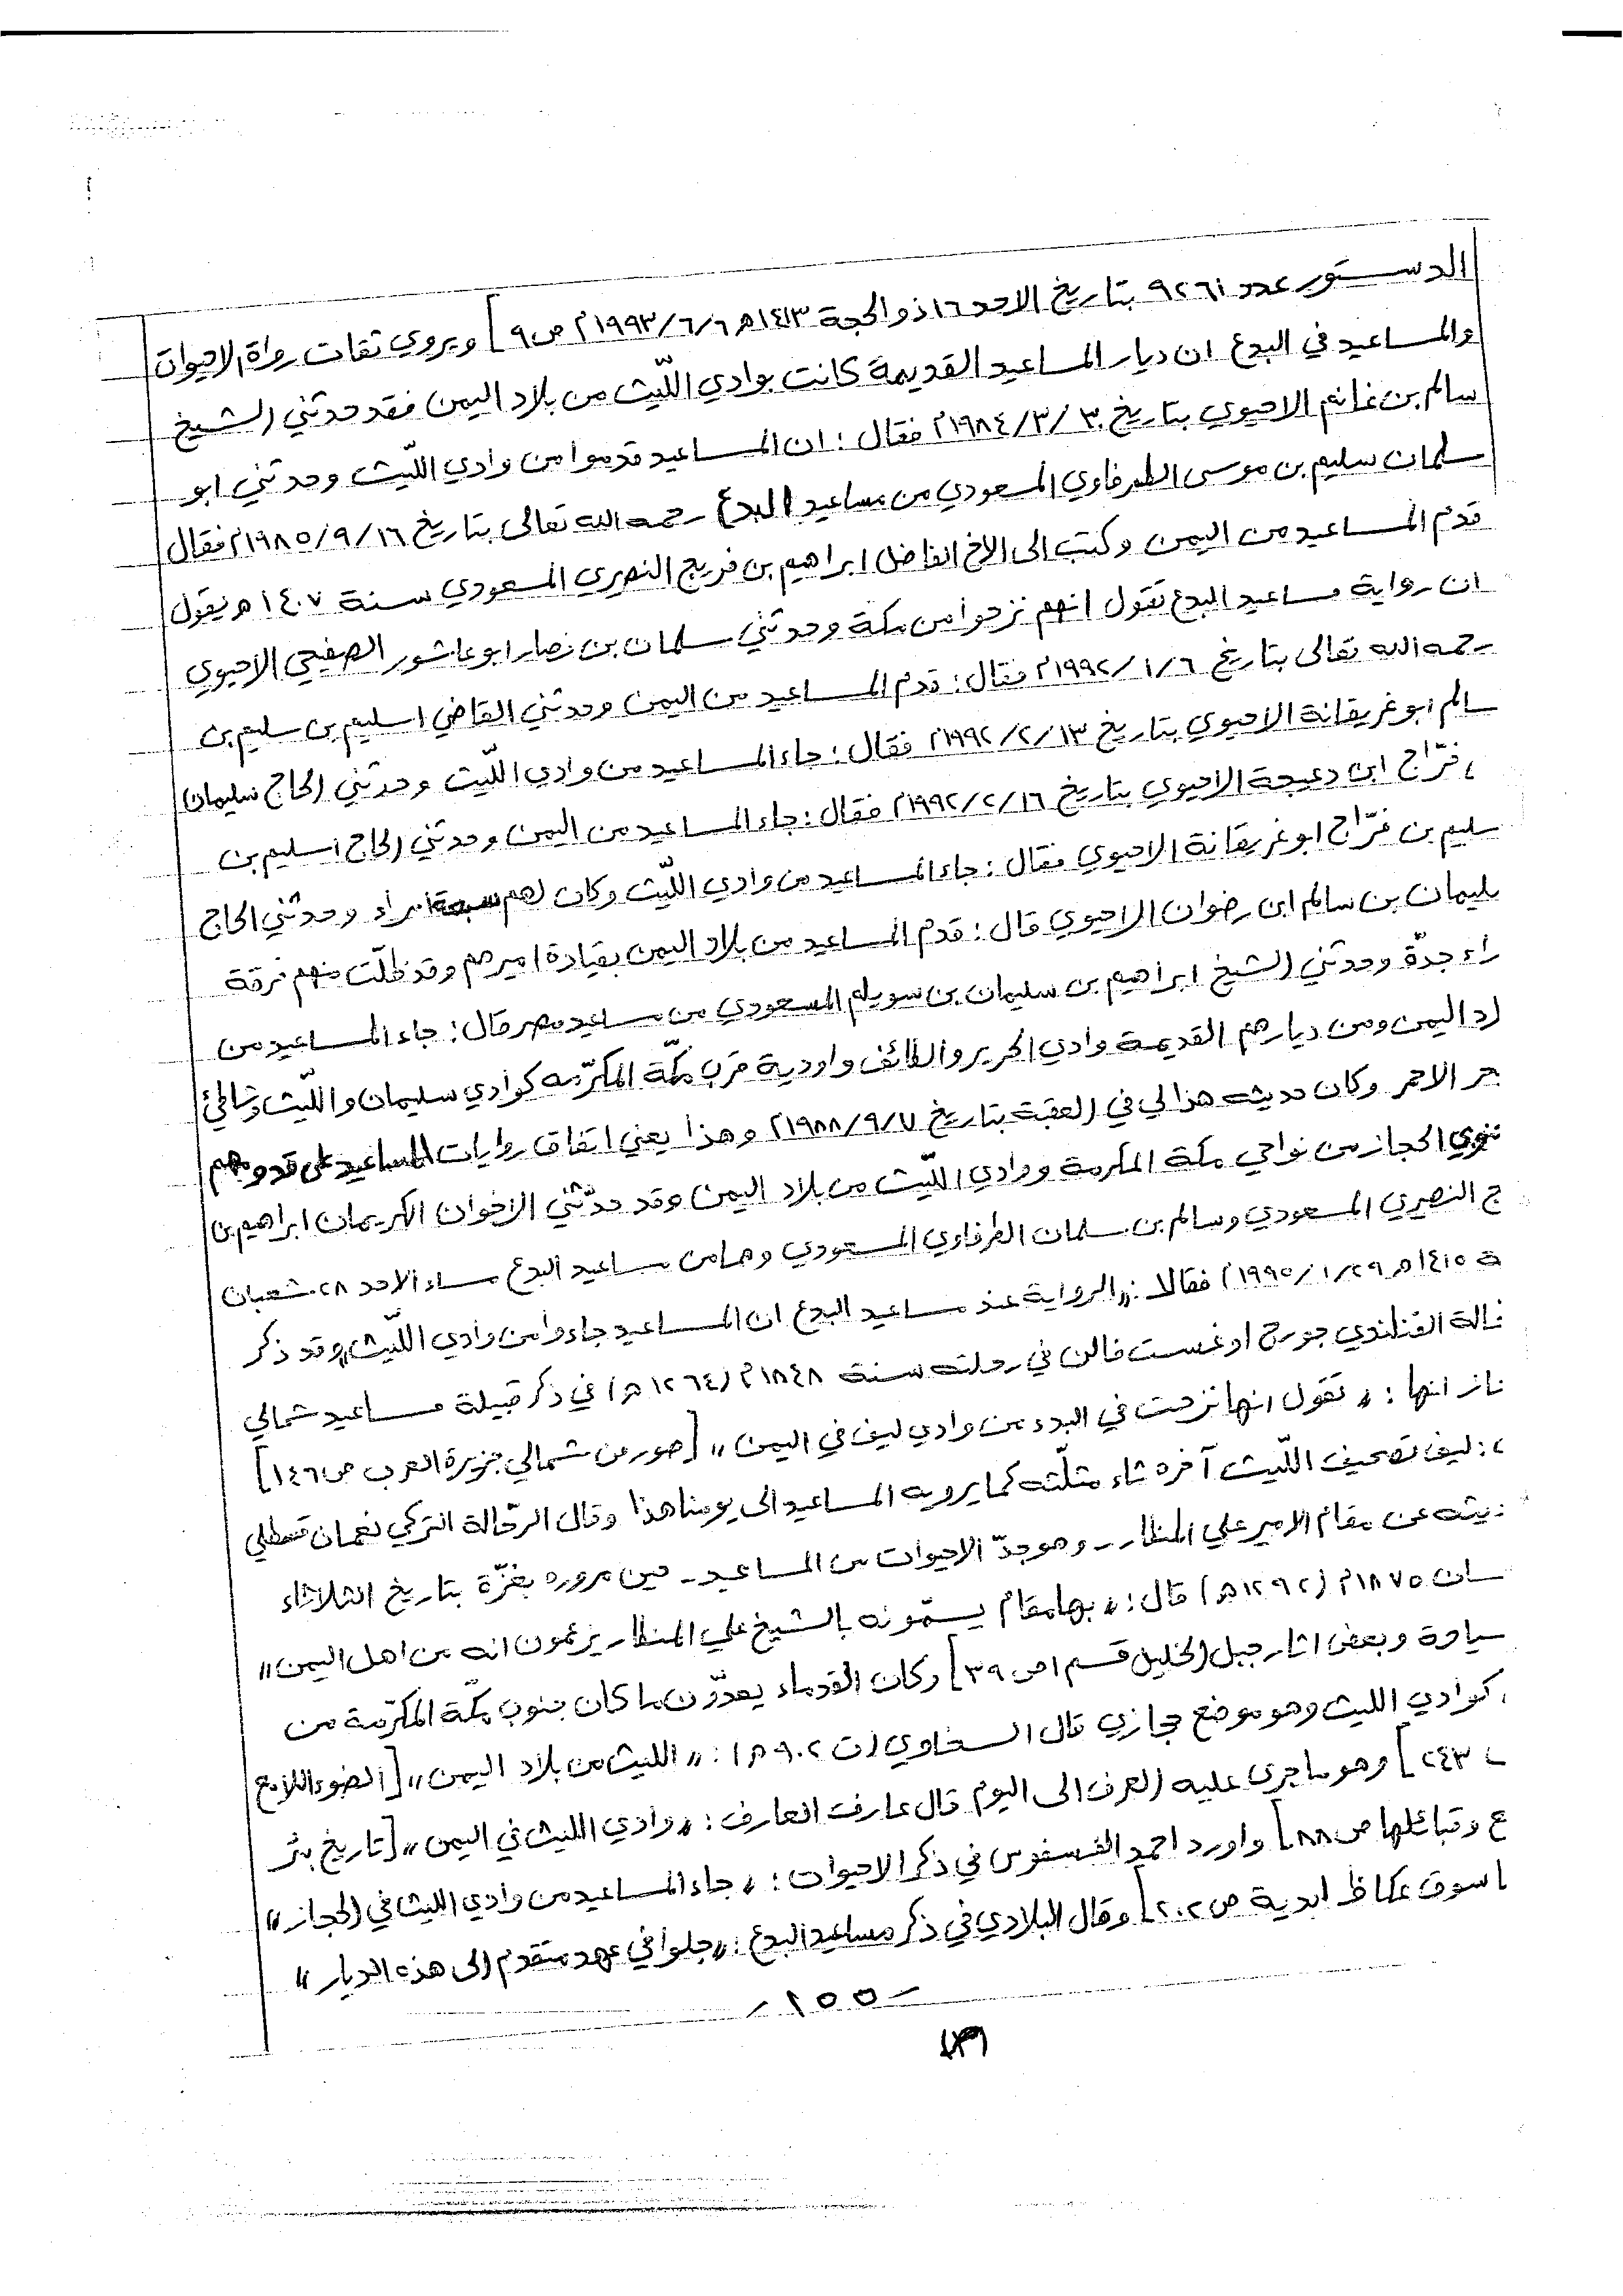 الدستور عدد ٩٢٦١ بتاريخ الاحد ١٦ ذو الحجة ١٤١٣ﻫ ١٩٩٣/٦/٦م ص٩] ويروي ثقات رواة الاحيوات
والمساعيد في البدع ان ديار المساعيد القديمة كانت بوادي اللّيث من بلاد اليمن فقد حدثني الشيخ
سالم بن غانم الاحيوي بتاريخ ١٩٨٤/٣/٣٠م فقال : ان المساعيد قدموا من وادي اللّيث وحدثني ابو
سلمان سليم بن موسى الطرفاوي المسعودي من مساعيد البدع رحمه الله تعالى بتاريخ ١٩٨٥/٩/١٦م فقال
قدم المساعيد من اليمن وكتب الى الاخ الفاضل ابراهيم بن فريج النصيري المسعودي سنة ١٤٠٧ﻫ يقول
ان رواية مساعيد البدع تقول انهم نزحوا من مكة وحدثني سلمان بن نصار ابو عاشور الصفيحي الاحيوي
رحمه الله تعالى بتاريخ ١٩٩٢/١/٦م فقال : قدم المساعيد من اليمن وحدثني القاضي اسليم بن سليم بن
سالم ابو غريقانة الاحيوي بتاريخ ١٩٩٢/٢/١٣م فقال : جاء المساعيد من وادي اللّيث وحدثني الحاج سليمان
فرّاج ابن دعيجة الاحيوي بتاريخ ١٩٩٢/٢/١٦م فقال : جاء المساعيد من اليمن وحدثني الحاج اسليم بن
سليم بن فرّاج ابو غريقانة الاحيوي فقال : جاء المساعيد من وادي اللّيث وكان لهم سبعة وحدثني الحاج
ليمان بن سالم ابن رضوان الاحيوي قال : قدم المساعيد من بلاد اليمن بقيادة اميرهم وقد ظلّت منهم فرقة
راء جدّة وحدثني الشيخ ابراهيم بن سليمان بن سويلم المسعودي من مساعيد مصر قال : جاء المساعيد من
د اليمن ومن ديارهم القديمة وادي الحرير والطائف واودية قرب مكّة المكرّمة كوادي سليمان واللّيث وشاطئ
حر الاحمر وكان حديثه هذا لي في العقبة بتاريخ ١٩٨٨/٩/٧م وهذا يعني اتفاق روايات المساعيد على قدومهم
نوبي الحجاز من نواحي مكة المكرمة ووادي اللّيث من بلاد اليمن وقد حدّثني الاخوان الكريمان ابراهيم بن
ج النصيري المسعودي وسالم بن سلمان الطرفاوي المسعودي وهما من مساعيد البدع مساء الاحد ٢٨ شعبان
ة ١٤١٥ﻫ ١٩٩٥/١/٢٩م فقالا : «الرواية عند مساعيد البدع ان المساعيد جاءوا من وادي اللّيث» وقد ذكر
الة الفنلندي جورج اوغست فالن في رحلته سنة ١٨٤٨م (١٢٦٤ﻫ) في ذكر قبيلة مساعيد شمالي
از انها : « تقول انها نزحت في البدء من وادي ليف في اليمن » [صور من شمالي جزيرة العرب ص١٤٦]
: ليف تصحيف اللّيث آخره ثاء مثلّثة كما يرويه المساعيد الى يومنا هذا وقال الرحّالة التركي نعمان قسطلي
ديثه عن مقام الامير علي المنطار - وهو جدّ الاحيوات من المساعيد - حين مروره بغزّة بتاريخ الثلاثاء
سان ١٨٧٥م (١٢٩٢ﻫ) قال : « بها مقام يسمّونه بالشيخ علي المنطار يزعمون انه من اهل اليمن »
سياحة وبعض اثار جبل الخليل قسم ١ ص٣٩] وكان القدماء يعدّون ما كان جنوب مكّة المكرّمة من
كوادي الليث وهو موضع حجازي قال السخاوي (ت ٩٠٢ﻫ) : « الليث من بلاد اليمن » [الضوء اللامع
٢٤٣] وهو ما جرى عليه العرف الى اليوم قال عارف العارف : « وادي الليث في اليمن » [تاريخ بئر
ع وقبائلها ص٨٨] واورد احمد الفسفوس في ذكر الاحيوات : « جاء المساعيد من وادي الليث في الحجاز »
ا سوق عكاظ ابدية ص٢٠٢] وقال البلادي في ذكر مساعيد البدع : « جلوا في عهد متقدم الى هذه الديار »
- ٢٥٥ -